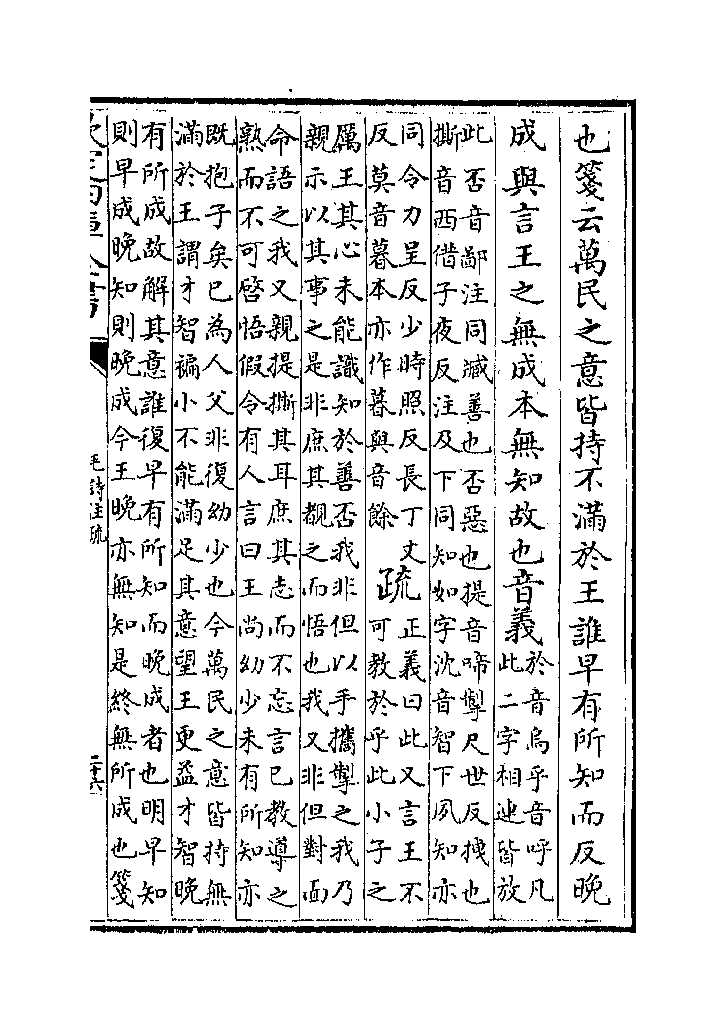 也箋云萬民之意皆持不滿於王誰早有所知而反晚
成與言王之無成本無知故也音義於音烏乎音呼凡
此二字相連皆放
此否音鄙注同臧善也否惡也提音啼掣尺世反拽也
撕音西借子夜反注及下同知如字沈音智下夙知亦
同令力呈反少時照反長丁丈
反莫音暮本亦作暮與音餘
疏正義曰此又言王不
可教於乎此小子之
厲王其心未能識知於善否我非但以手攜掣之我乃
親示以其事之是非庶其覩之而悟也我又非但對面
命語之我又親提撕其耳庶其志而不忘言已教導之
熟而不可啓悟假令有人言曰王尚幼少未有所知亦
既抱子矣已為人父非復幼少也今萬民之意皆持無
滿於王謂才智褊小不能滿足其意望王更益才智晚
有所成故解其意誰復早有所知而晚成者也明早知
則早成晚知則晚成今王晚亦無知是終無所成也箋
毛詩注疏